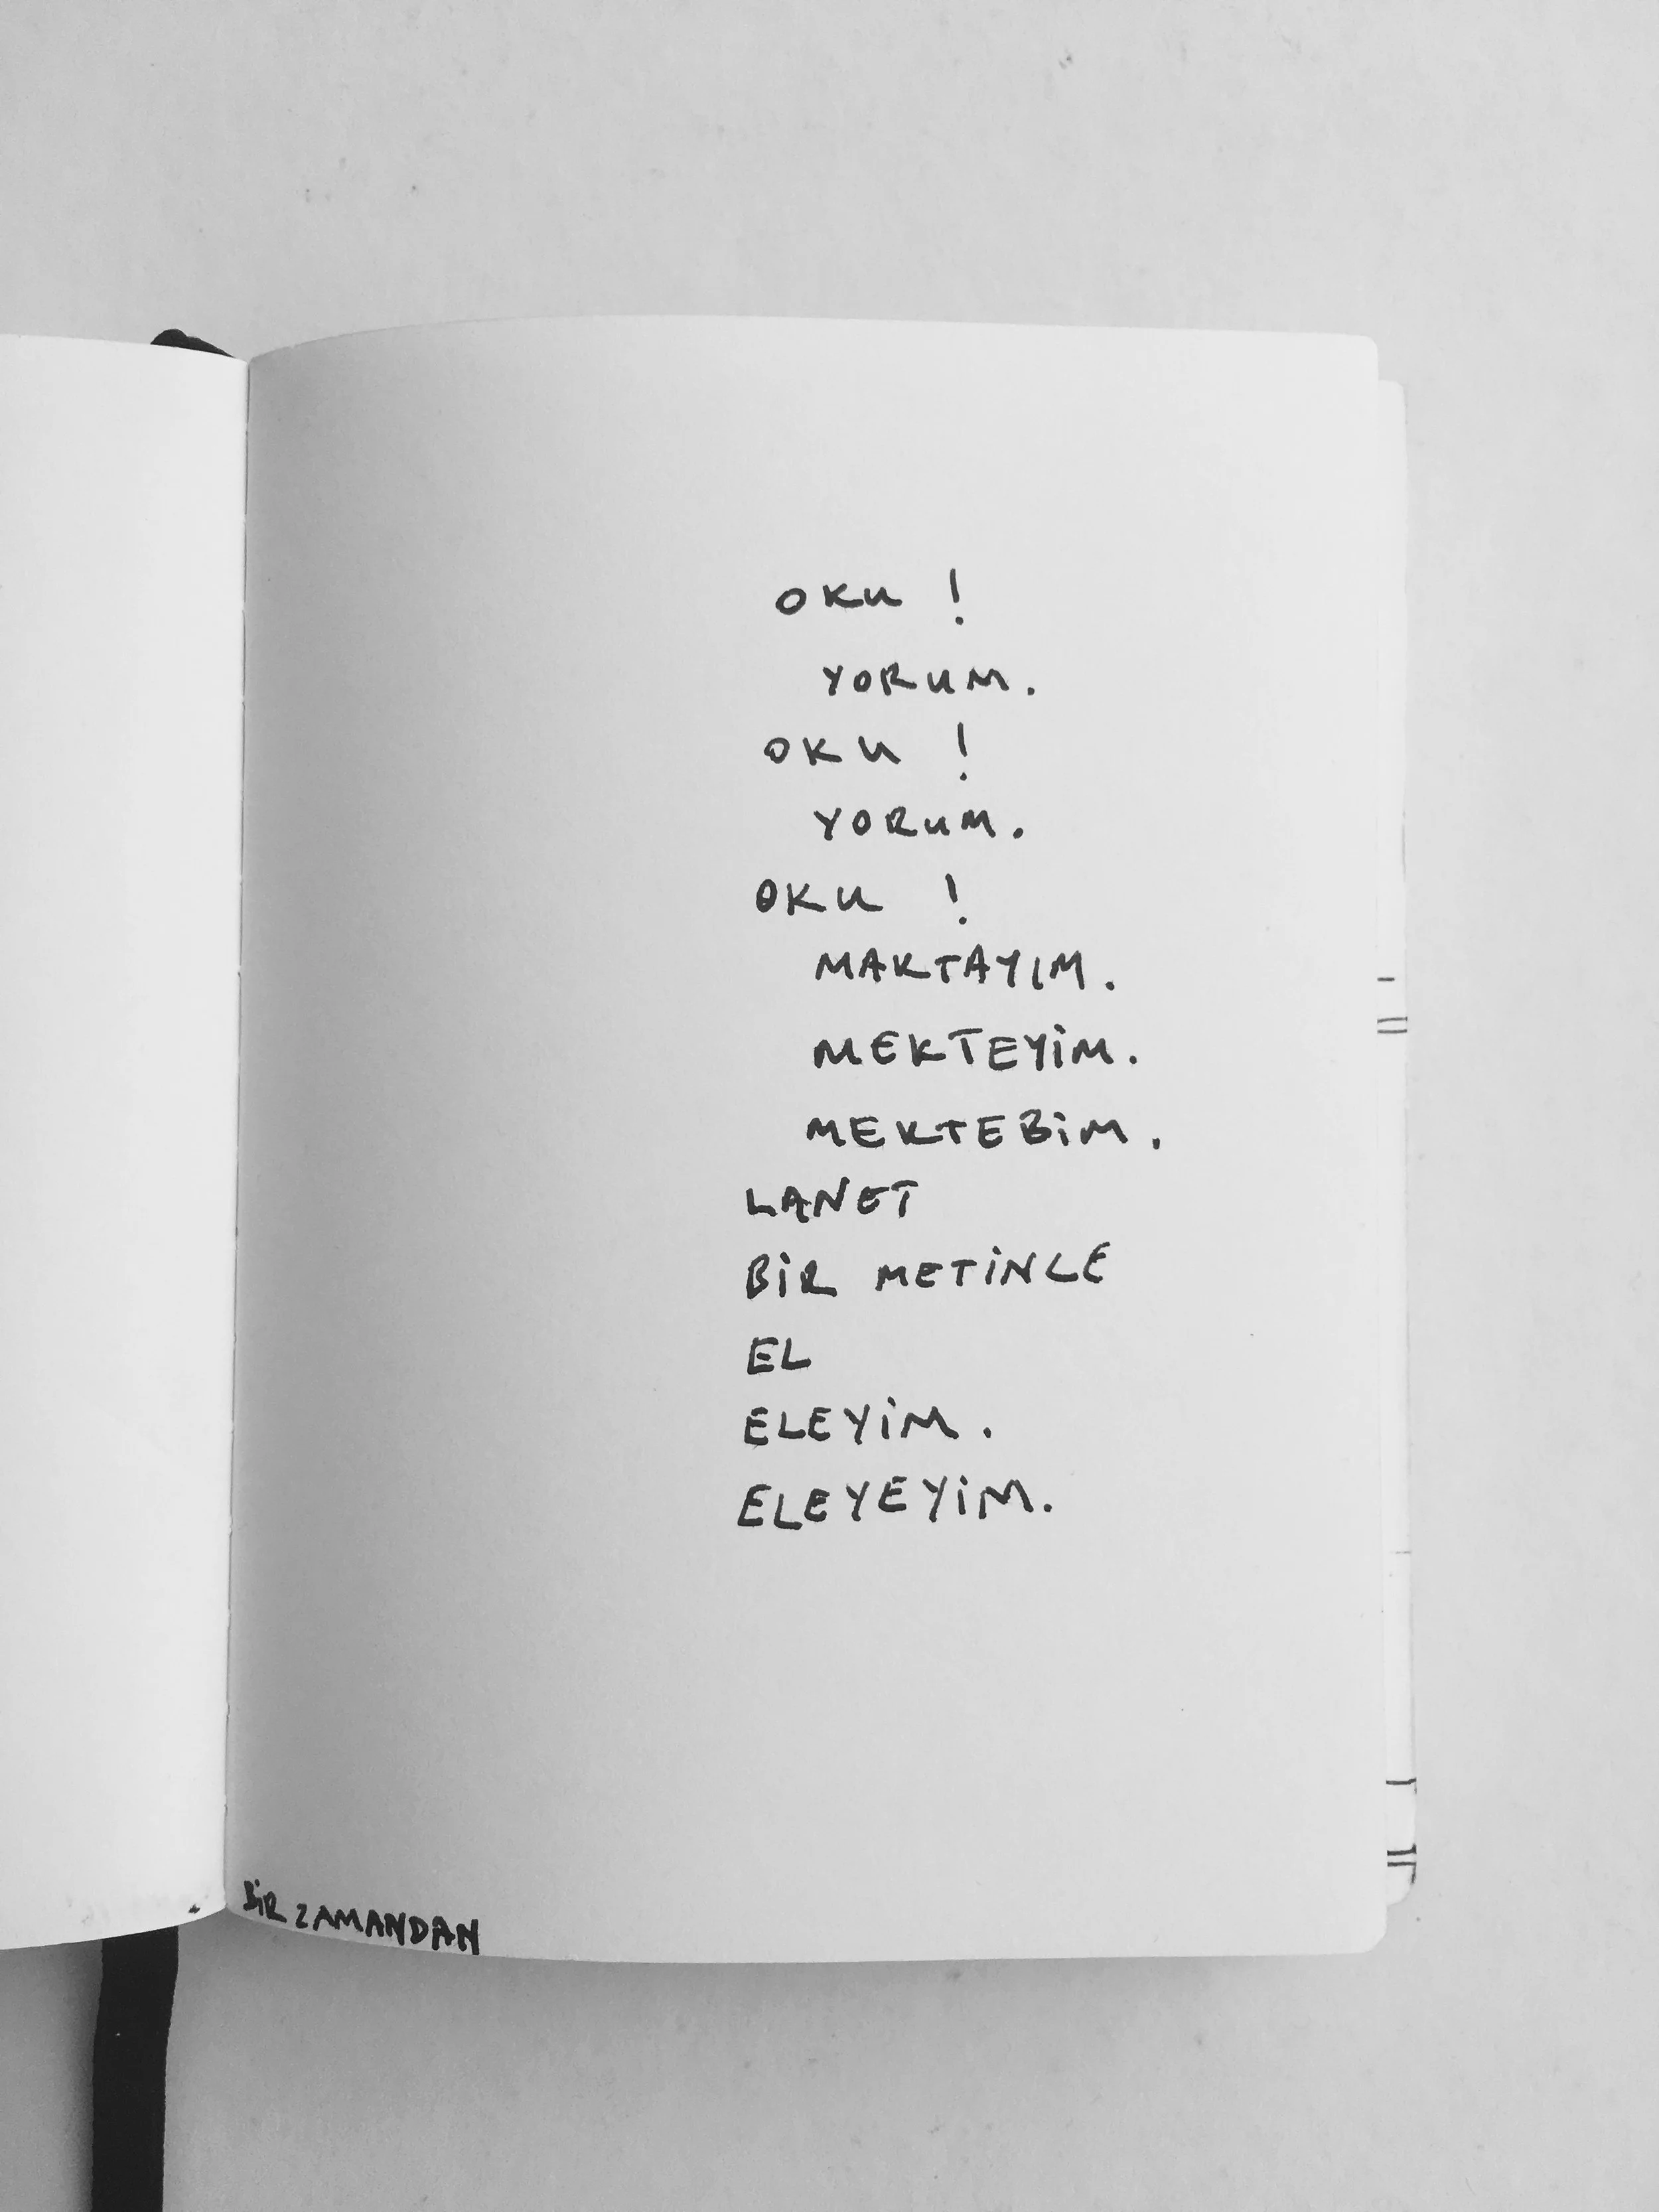 OKU !
YORUM.
OKU !
YORUM.
OKU !
MAKTAYIM.
MEKTEYİM.
MEKTEBİM.
LANET
BİR METİNLE
EL
ELEYİM.
ELEYEYİM.
BİR ZAMANDAN